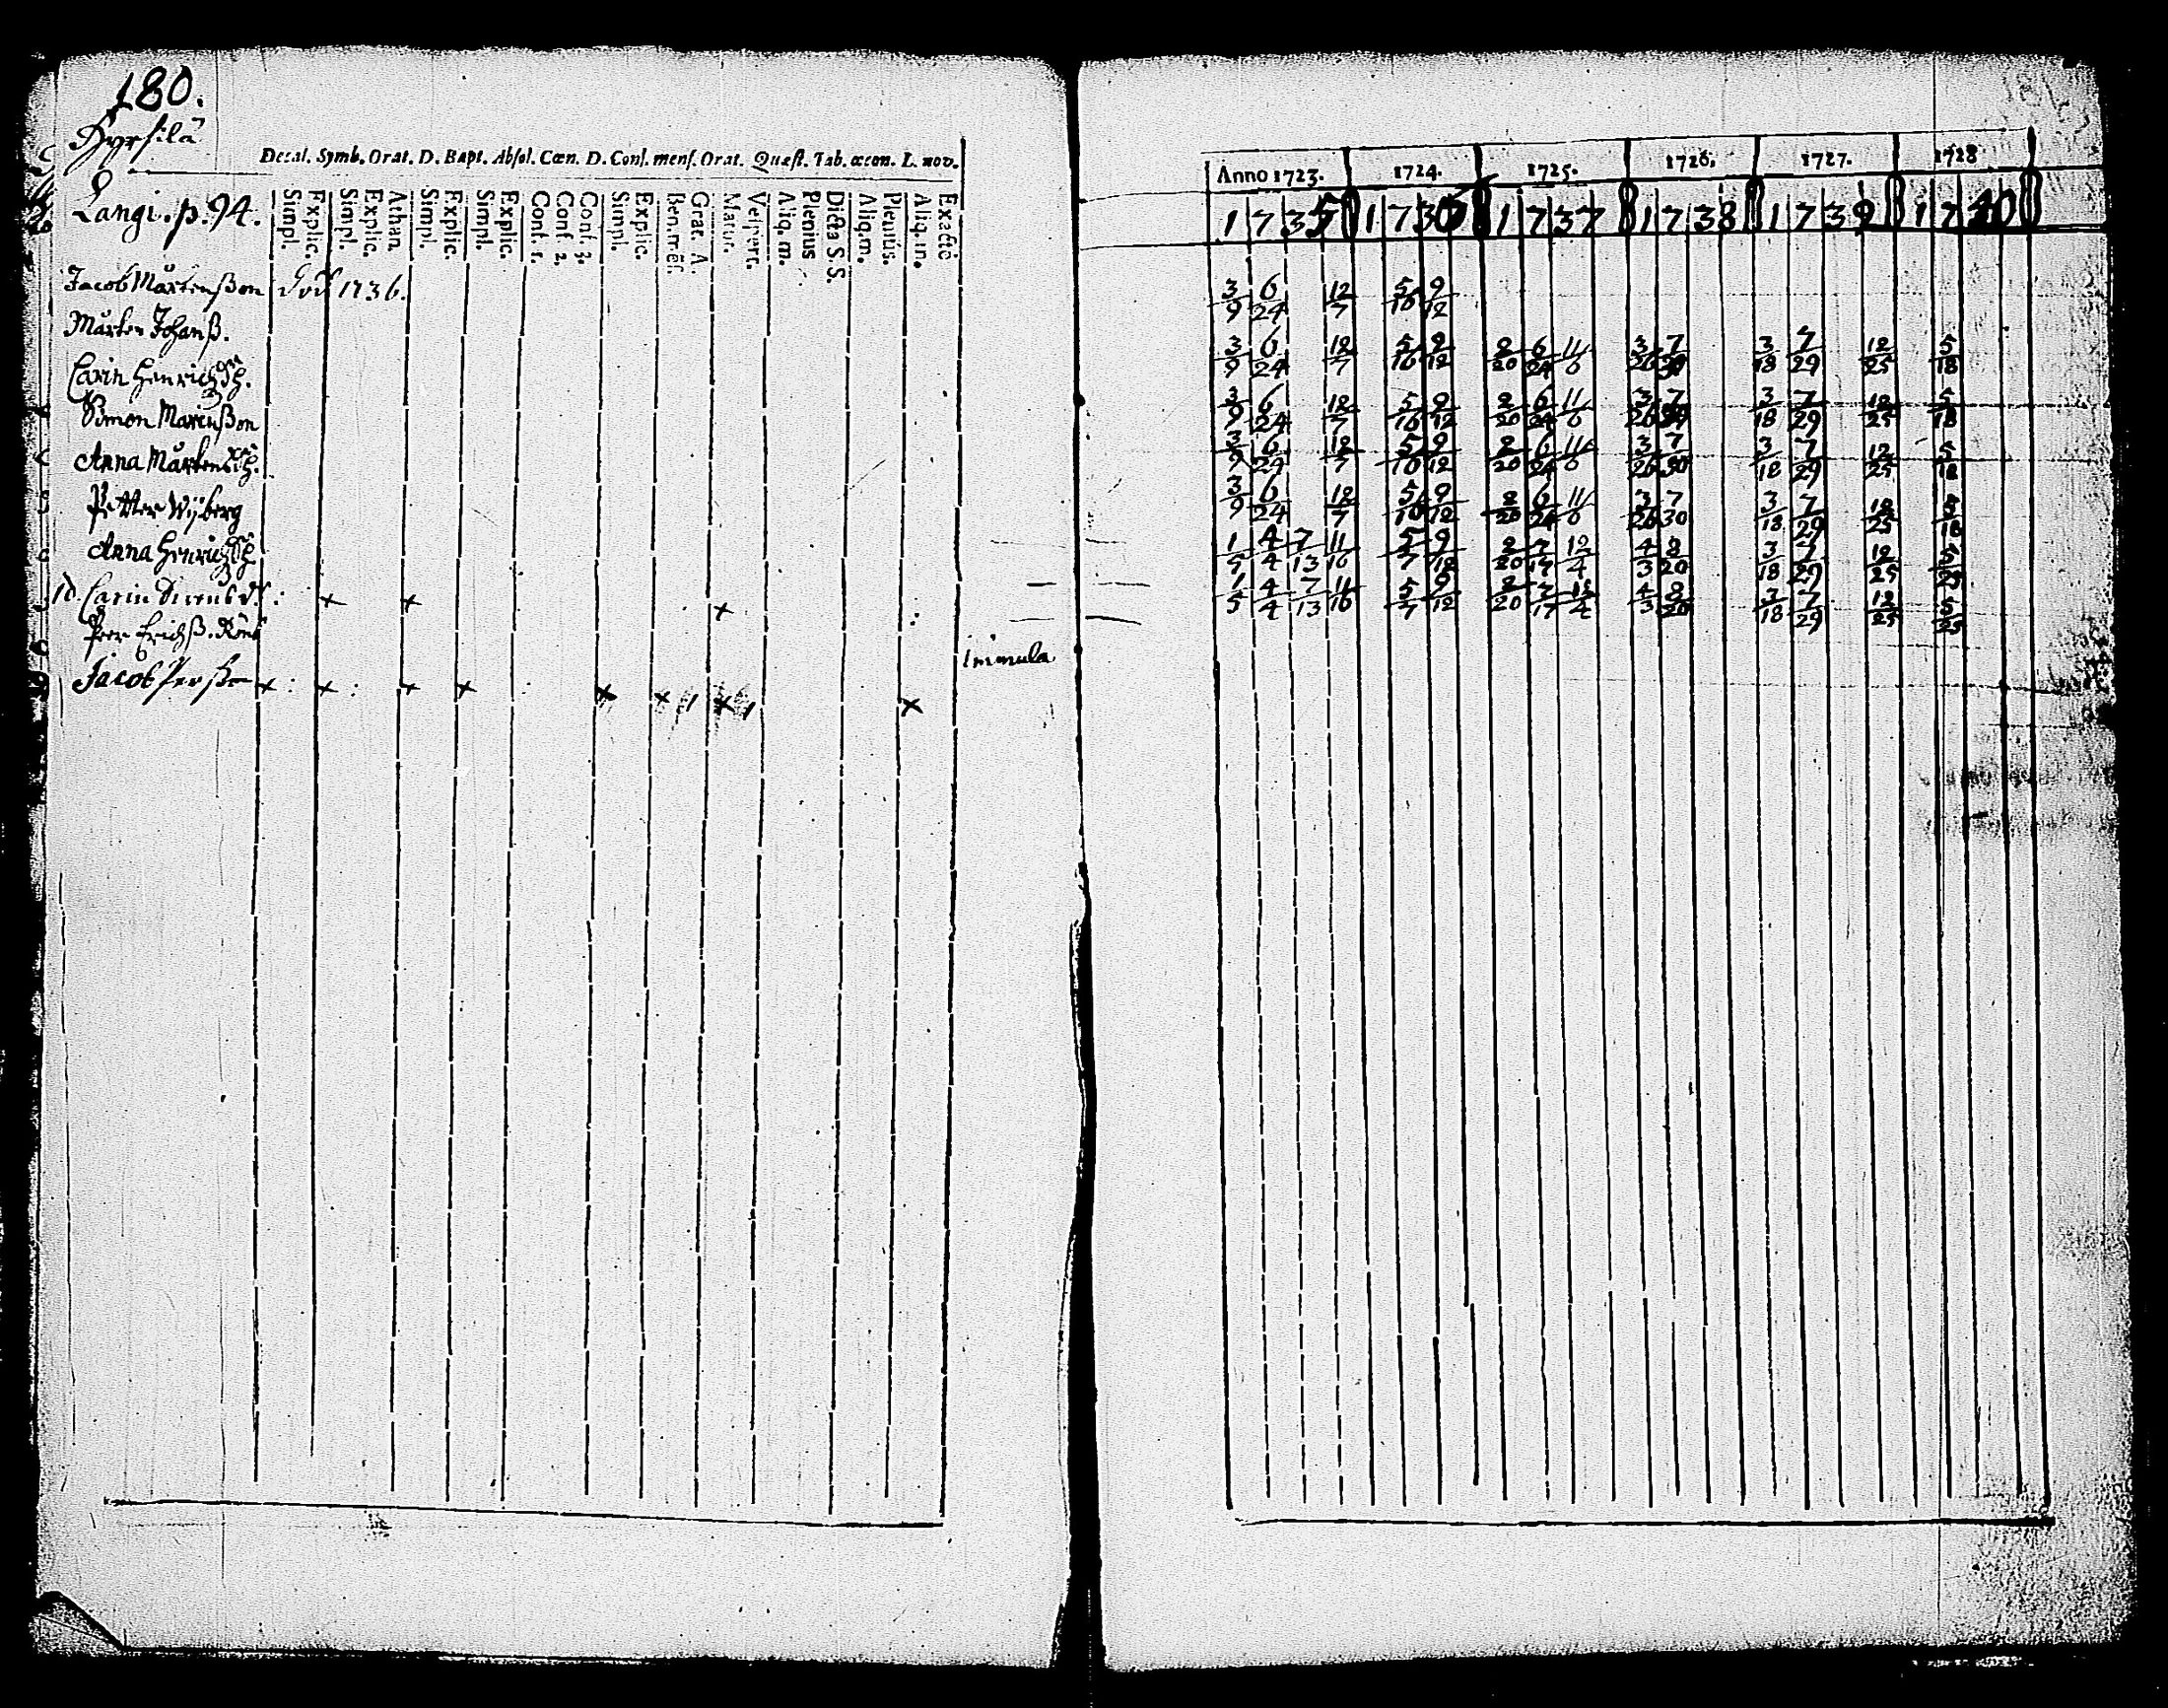 180.
Hyrsilä
Decal. Symb. Orat. D. Bapt. Absol. Cœn. D. Conf. mens. Orat. Quæst. Tab. œcon. L. nov.
Langi. p. 94.
Simpl. Explic. Simpl. Explic. Athan. Simpl. Explic. Simpl. Explic. Conf. 1. Conf. 2. Conf. 3. Simpl. Explic. Ben. mēs. Grat. A. Matut. Vespert. Aliq. m. Plenius Dicta S.S. Aliq. m. Plenius. Aliq. m. Exactè
Jacob Mårtensson död 1736.
Mårten Johanß.
Carin Henrichsdȟ.
Simon Mårtenßon
Anna Mårtensdȟ.
Petter Wijberg
Anna Henrichsdȟ
Carin
Peer Erichß.
Jacob Perßon
immula
Anno 1723. 1724. 1725. 1726. 1727. 1728
1735 1736 1737 1738 1739 1740
3/9 6/24 12/7 5/16 9/12
3/9 6/24 12/7 5/16 9/12 2/20 6/24 11/6 3/26 7/30 3/18 7/29 12/25 5/18
3/9 6/24 12/7 5/16 9/12 2/20 6/24 11/6 3/26 7/30 3/18 7/29 12/25 5/18
3/9 6/24 12/7 5/16 9/12 2/20 6/24 11/6 3/26 7/30 3/18 7/29 12/25 5/18
3/9 6/24 12/7 5/16 9/12 2/20 6/24 11/6 3/26 7/30 3/18 7/29 12/25 5/18
1/5 4/4 7/13 11/16 5/7 9/12 2/20 7/17 12/4 4/3 8/20 3/18 7/29 12/25 5/25
1/5 4/4 7/13 11/16 5/7 9/12 2/20 7/17 12/4 4/3 8/20 3/18 7/29 12/25 5/25